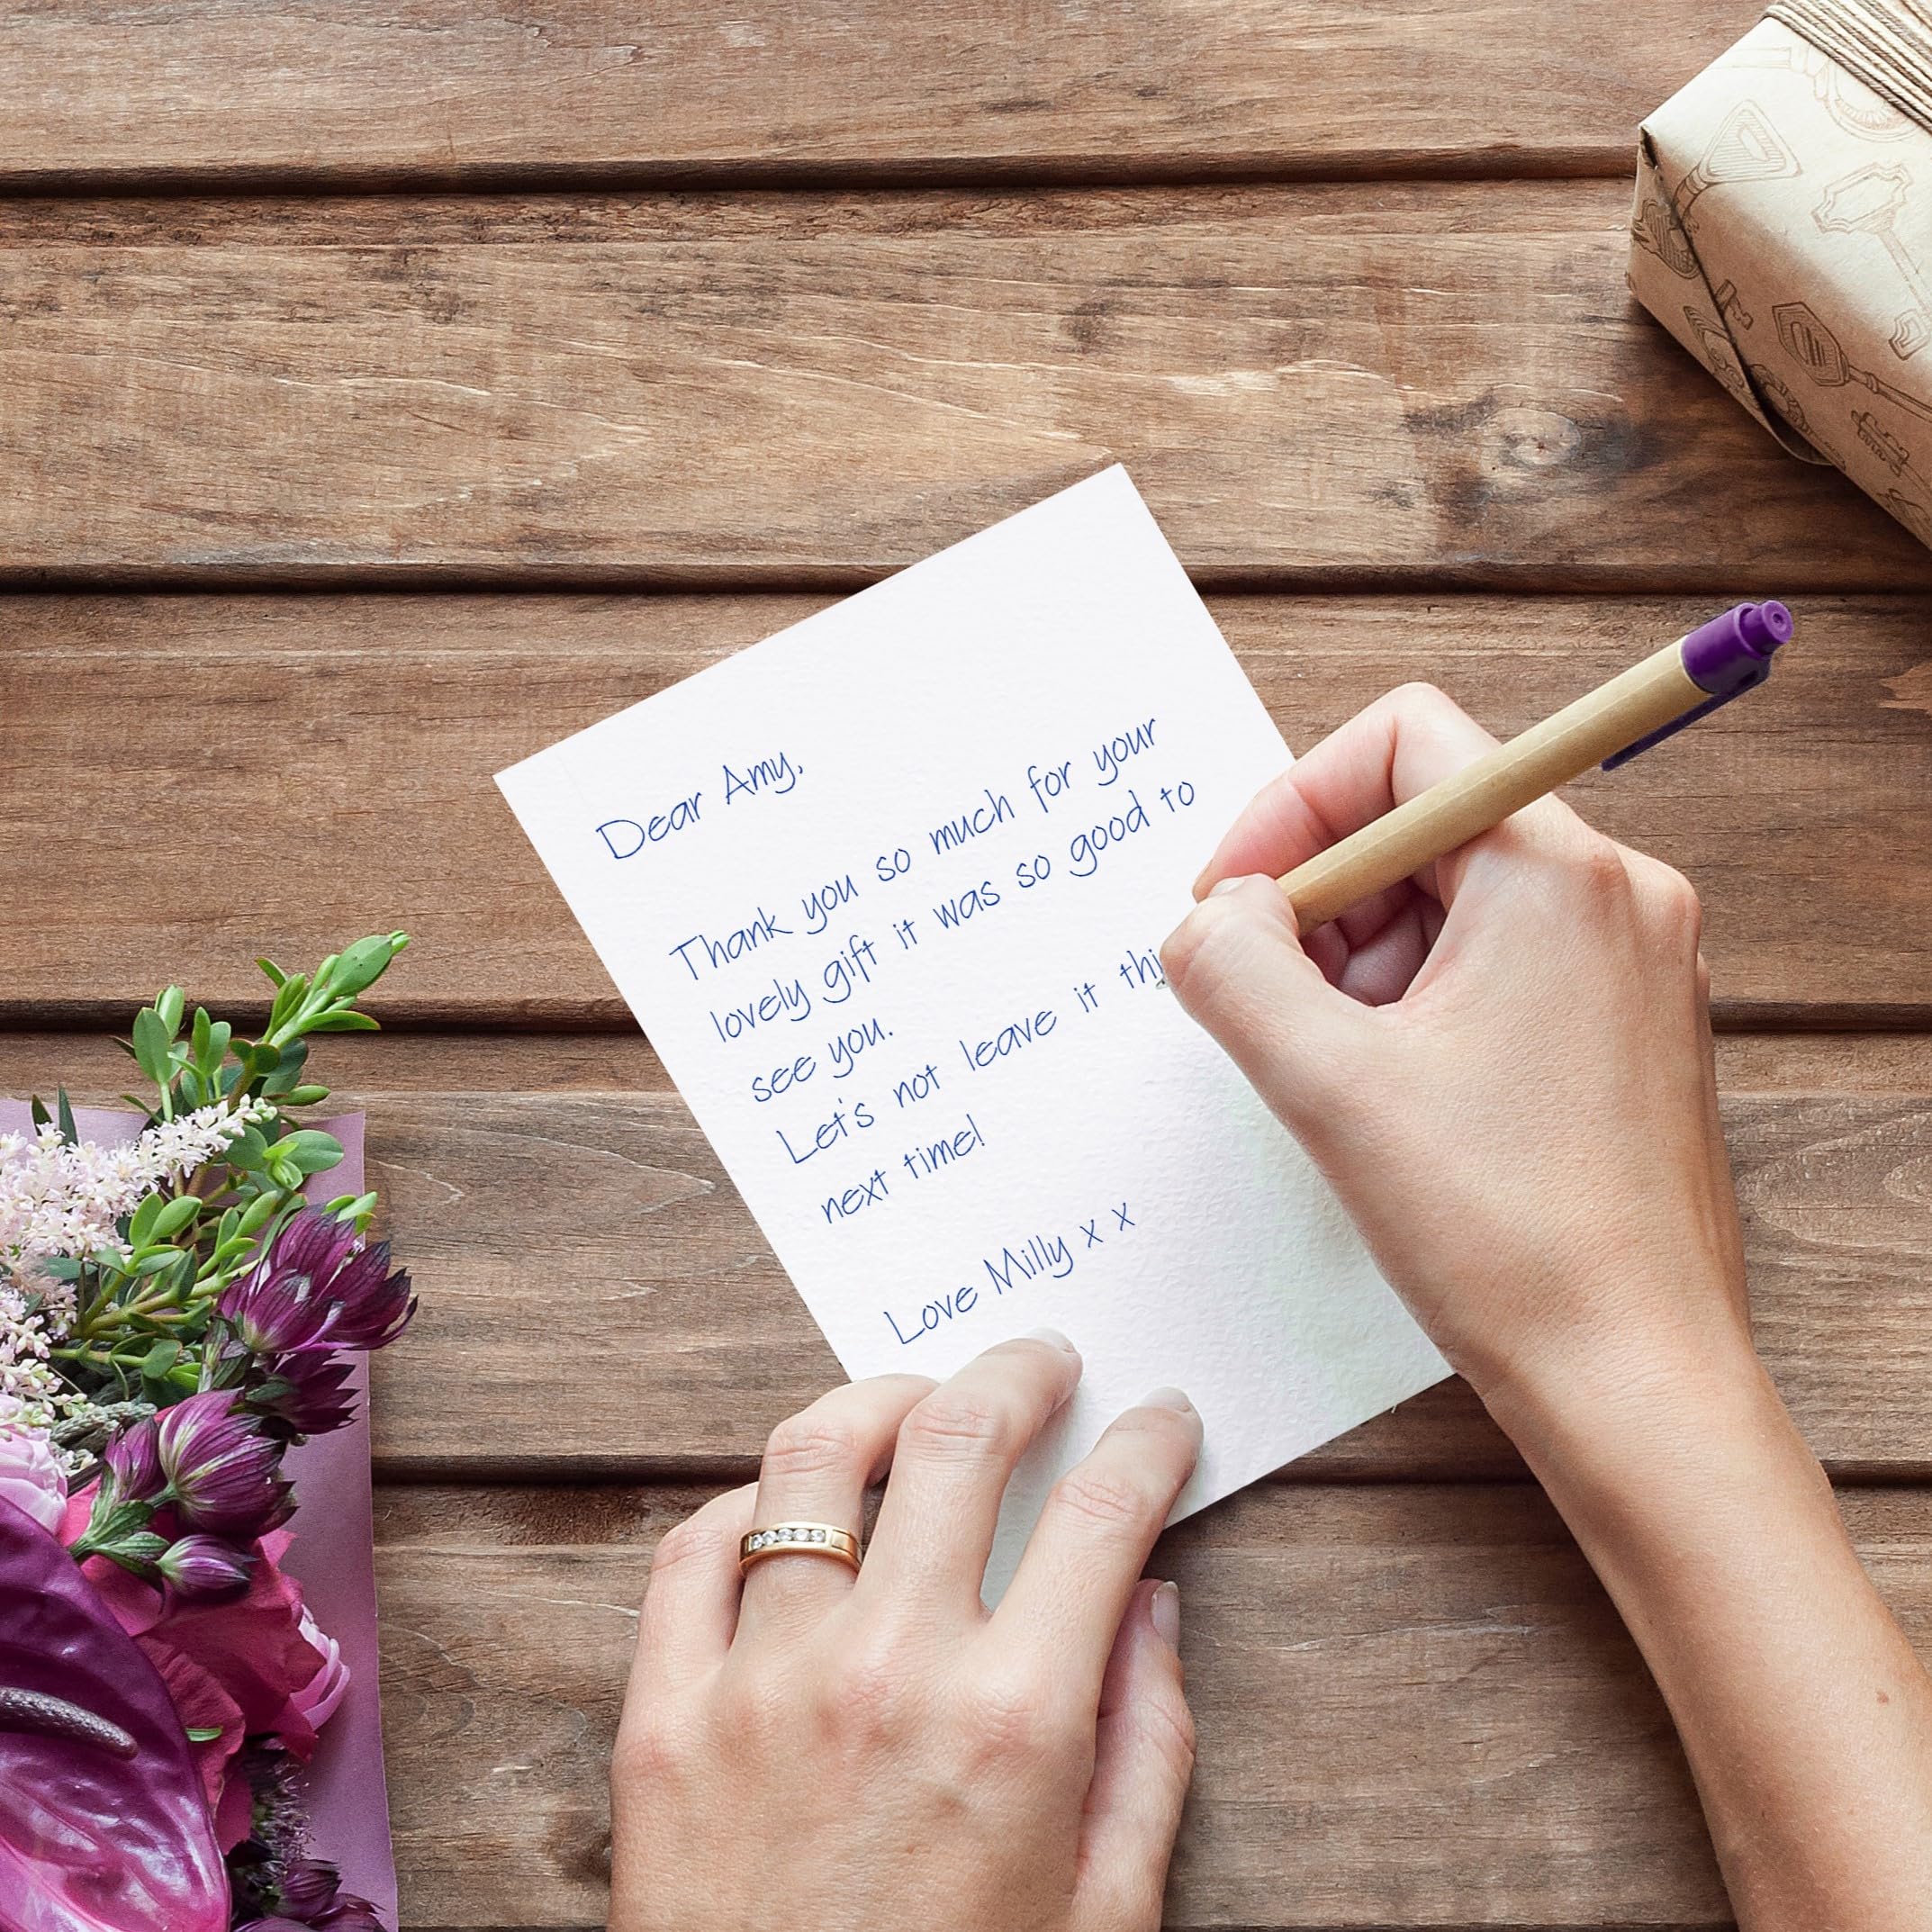 Dear Amy,
Thank you so much for your
lovely gift it was so good to
see you.
Let's not leave it
next time!
Love Milly x x